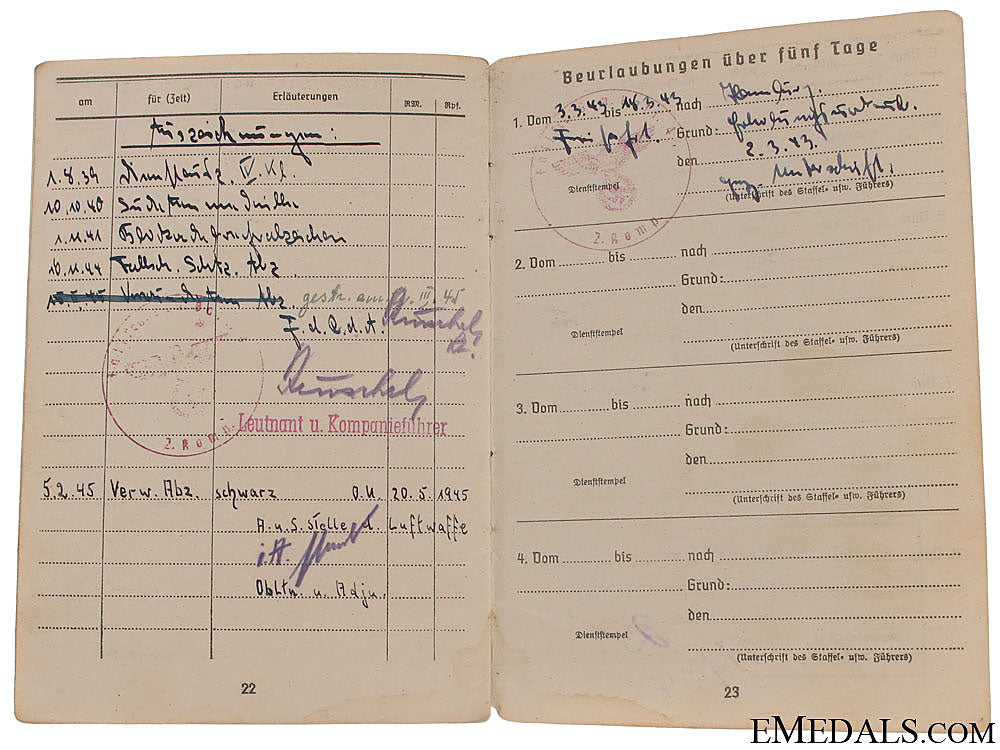 am für (Zeit) Erläuterungen RM. Rpf.
Auszeichnungen:
1.8.39 IV. Kl.
10.10.40
1.11.41
10.11.44 Fallsch. Schtz. Abz.
Abz. gestr. am III. 45
F.d.R.d.A.
Leutnant u. Kompanieführer
2. Komp.
5.2.45 Verw. Abz. schwarz O.U. 20.5.1945
A.u.S. Stelle d. Luftwaffe
i.A.
Obltn. u. Adju.
22
Beurlaubungen über fünf Tage
1. Vom 3.3.43 bis 18.3.43 nach Hamburg.
Grund: Erholungsurlaub.
den 2.3.43.
Dienststempel
gez. Unterschrift.
(Unterschrift des Staffel- usw. Führers)
2. Komp.
2. Vom bis nach
Grund:
den
Dienststempel
(Unterschrift des Staffel- usw. Führers)
3. Vom bis nach
Grund:
den
Dienststempel
(Unterschrift des Staffel- usw. Führers)
4. Vom bis nach
Grund:
den
Dienststempel
(Unterschrift des Staffel- usw. Führers)
23
EMEDALS.COM